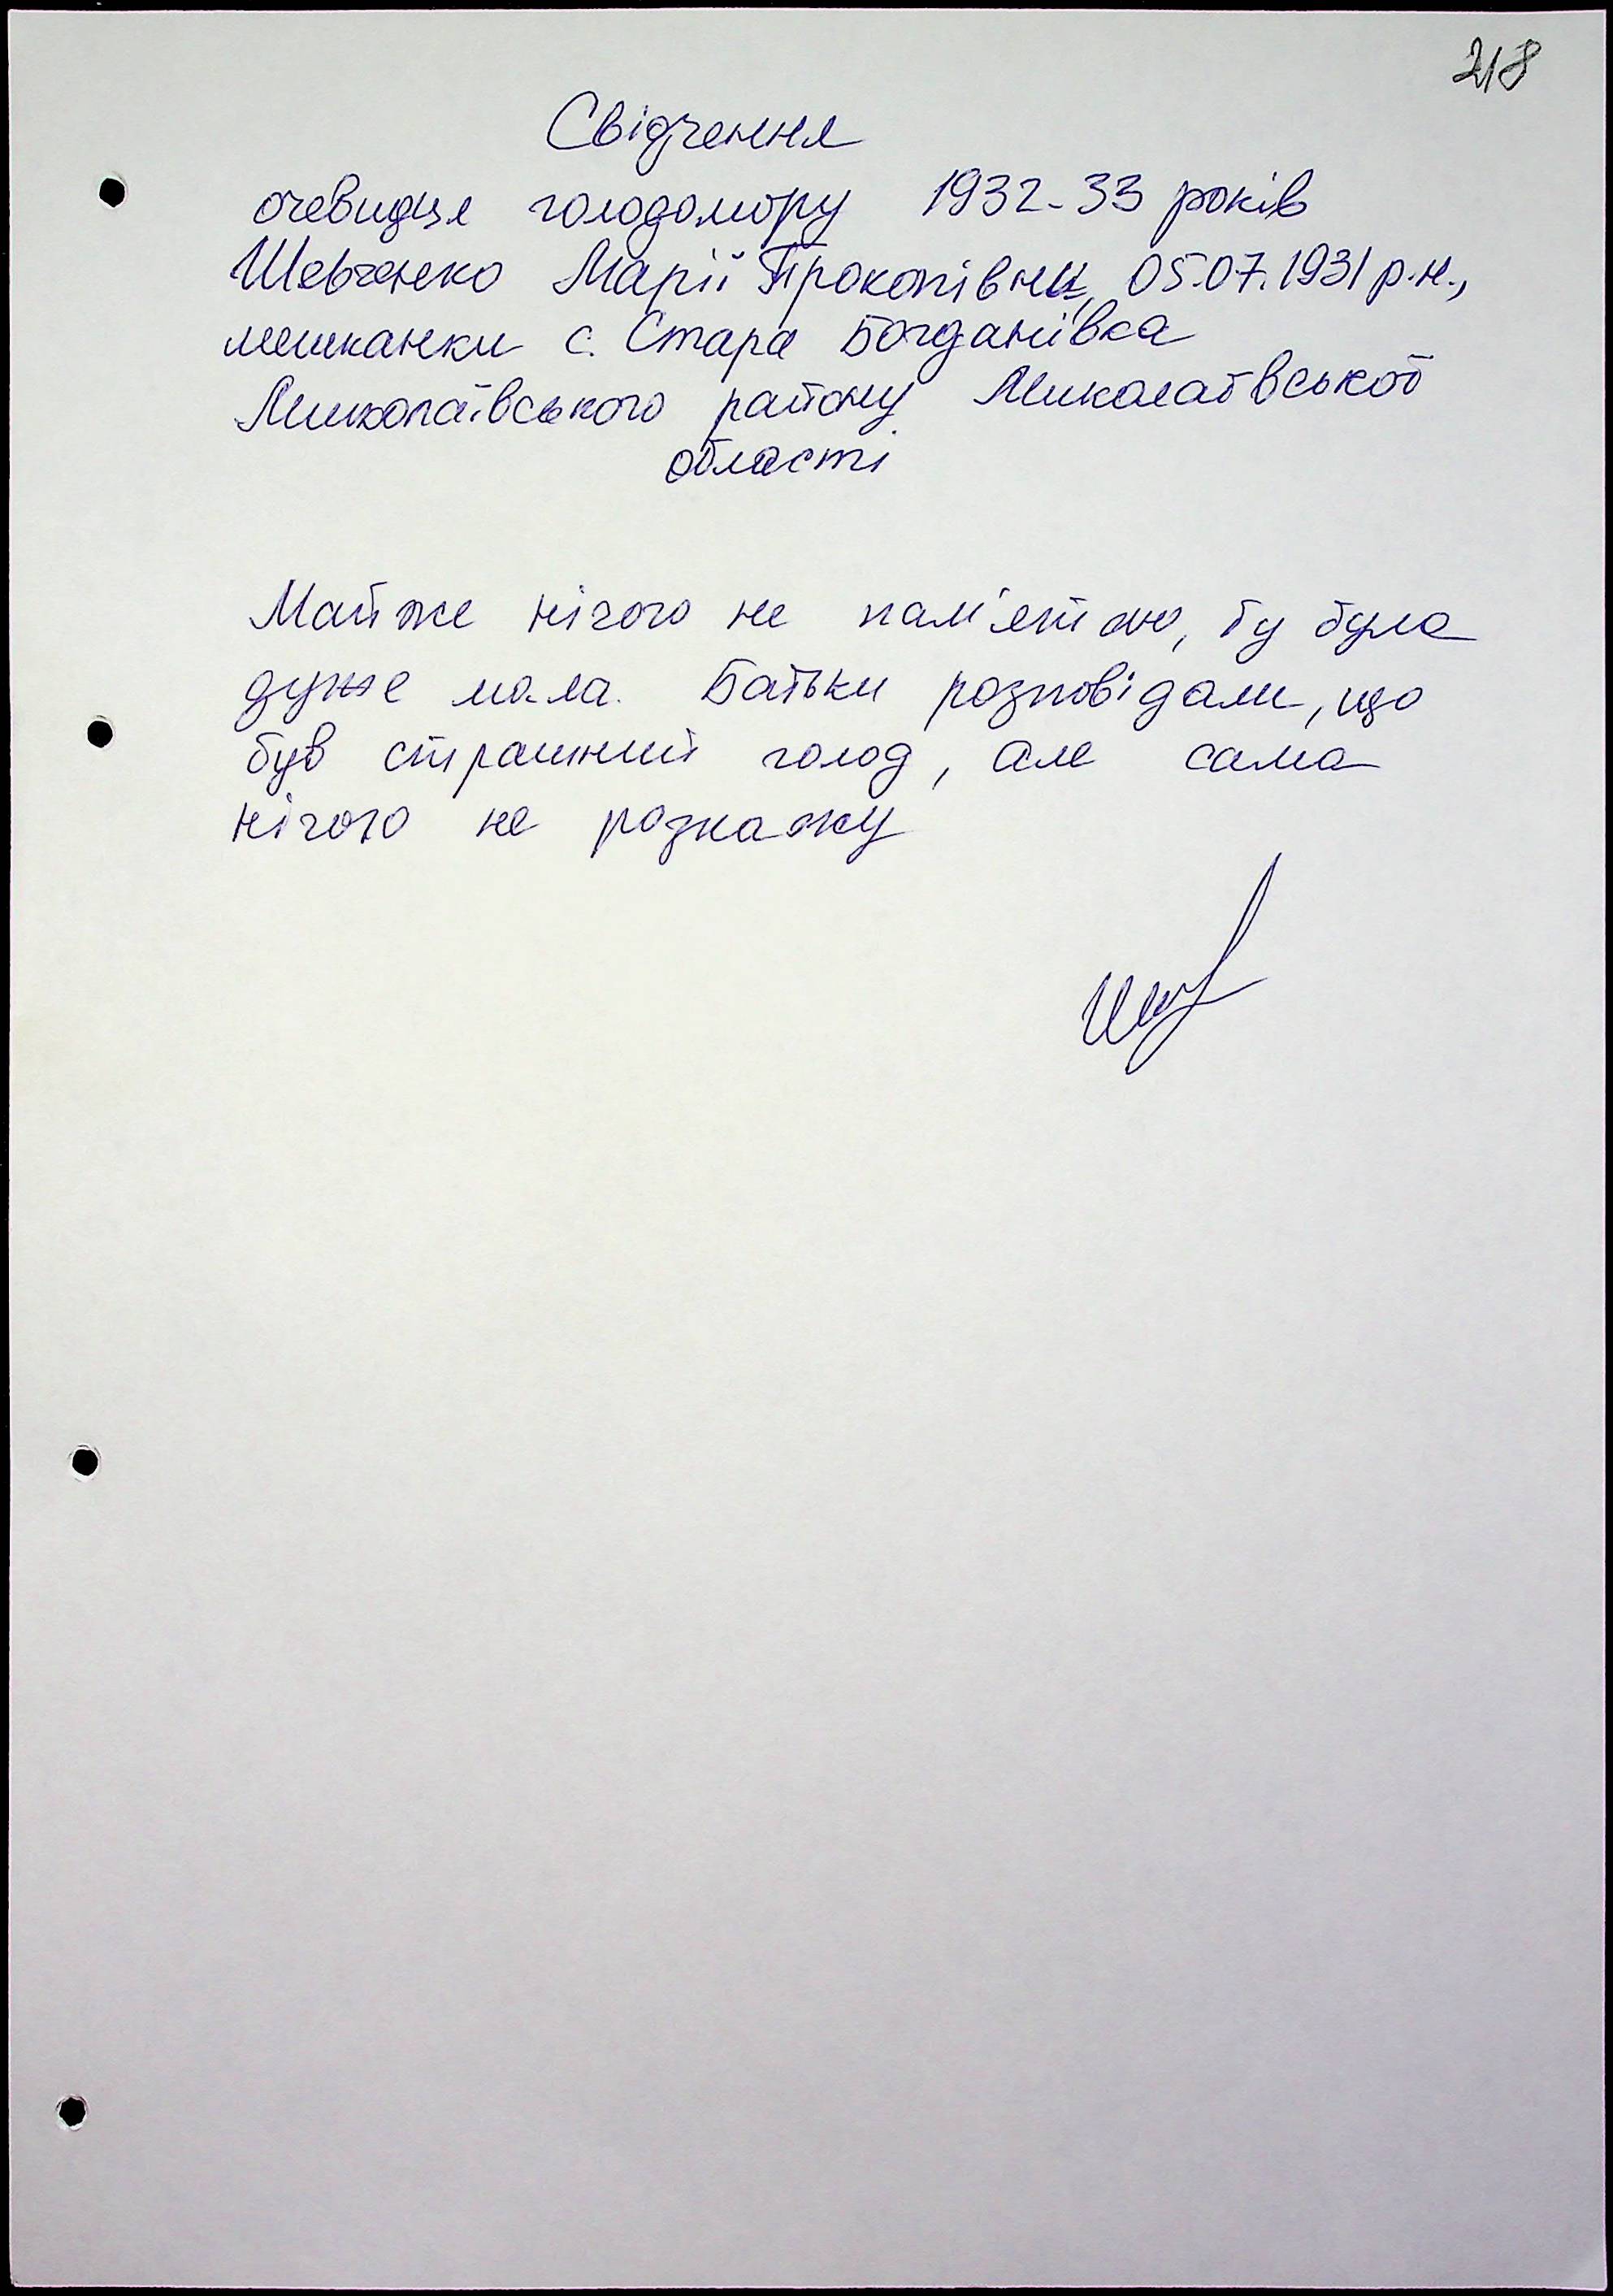 218
Свідчення
очевидця голодомору 1932-33 років
Шевченко Марії Прокопівни, 05.07.1931 р.н.,
мешканки с. Стара Богданівка
Миколаївського району Миколаївської
області
Майже нічого не пам'ятаю, бу була
дуже мала. Батьки розповідали, що
був страшний голод, але сама
нічого не розкажу